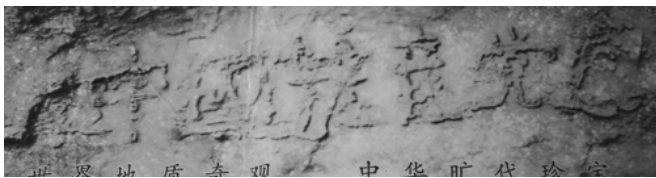 中国共产党亡
世界地质奇观 中华旷代珍宝